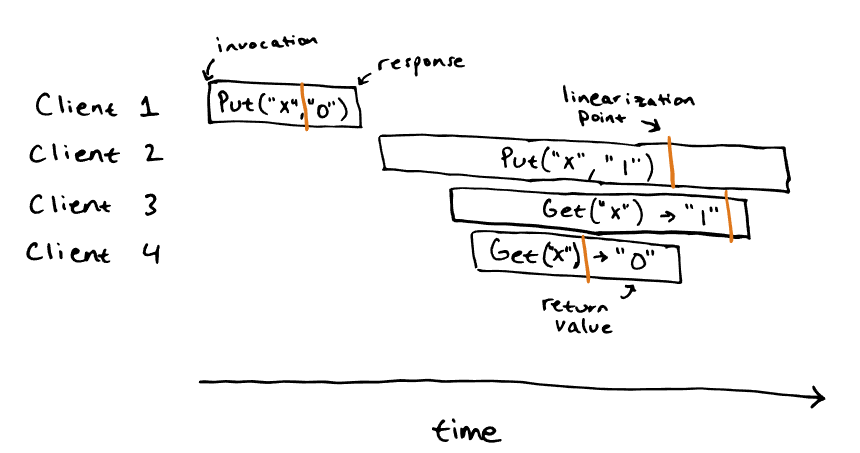 invocation
response
Client 1 Put("x", "0")
linearization
point
Client 2 Put("x", "1")
Client 3 Get("x") → "1"
Client 4 Get("x") → "0"
return
value
time